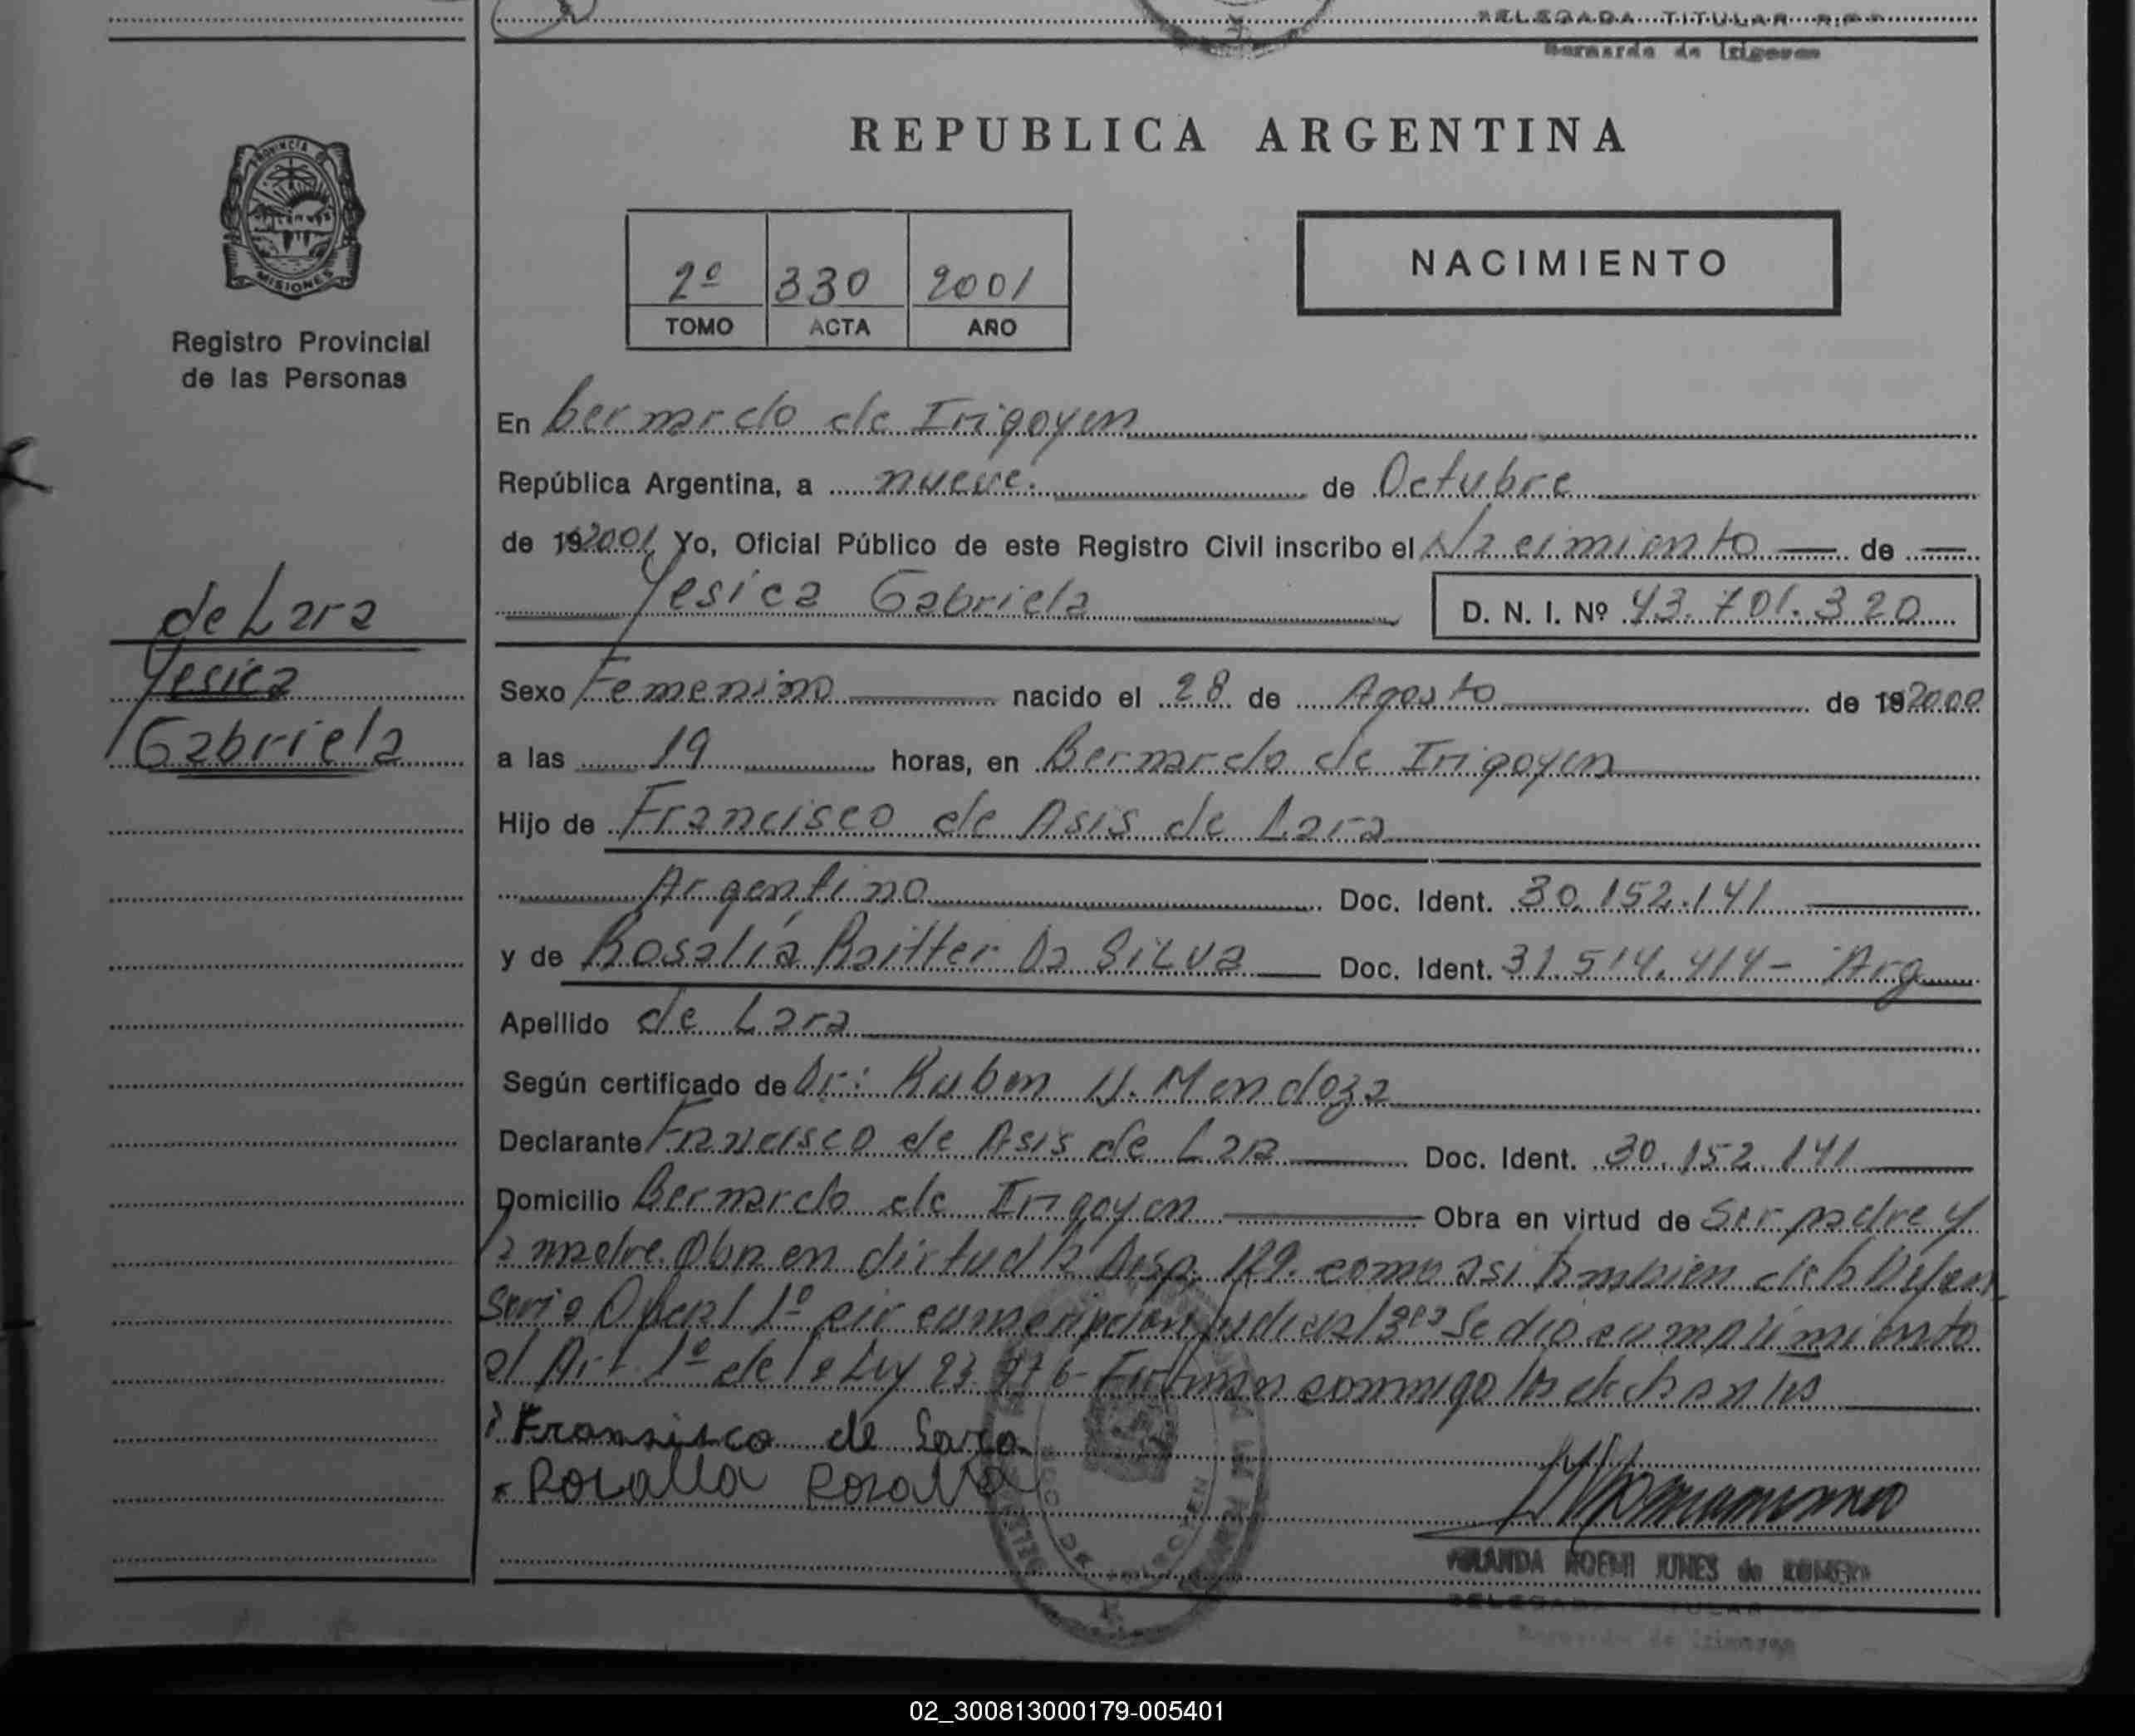 DELEGADA TITULAR R.P.P.
Bernardo de Irigoyen
PROVINCIA DE MISIONES
Registro Provincial
de las Personas
de Lara
Yesica
Gabriela
REPUBLICA ARGENTINA
2º 330 2001
TOMO ACTA AÑO
NACIMIENTO
En bernardo de Irigoyen
República Argentina, a nueve. de Octubre
de 192001 Yo, Oficial Público de este Registro Civil inscribo el Nacimiento de
Yesica Gabriela D. N. I. Nº 43.701.320
Sexo Femenino nacido el 28 de Agosto de 192000
a las 19 horas, en Bernardo de Irigoyen
Hijo de Francisco de Asis de Lara
Argentino Doc. Ident. 30.152.141
y de Rosalia Raitter Da Silva Doc. Ident. 31.514.414- Arg
Apellido de Lara
Según certificado de Dr: Ruben Mendoza
Declarante Francisco de Asis de Lara Doc. Ident. 30.152.141
Domicilio Bernardo de Irigoyen Obra en virtud de Ser padre y
madre. Obra en virtud Disp. como asi tambien de la
1º circumscripcion judicial Se dio cumplimiento
el Art. 1º de la Ley Firman conmigo los declarantes
Fransisco de Lara
Rosalia
NOEMI JUNES de ROMERO
DELEGADA TITULAR
Bernardo de Irigoyen
02_300813000179-005401